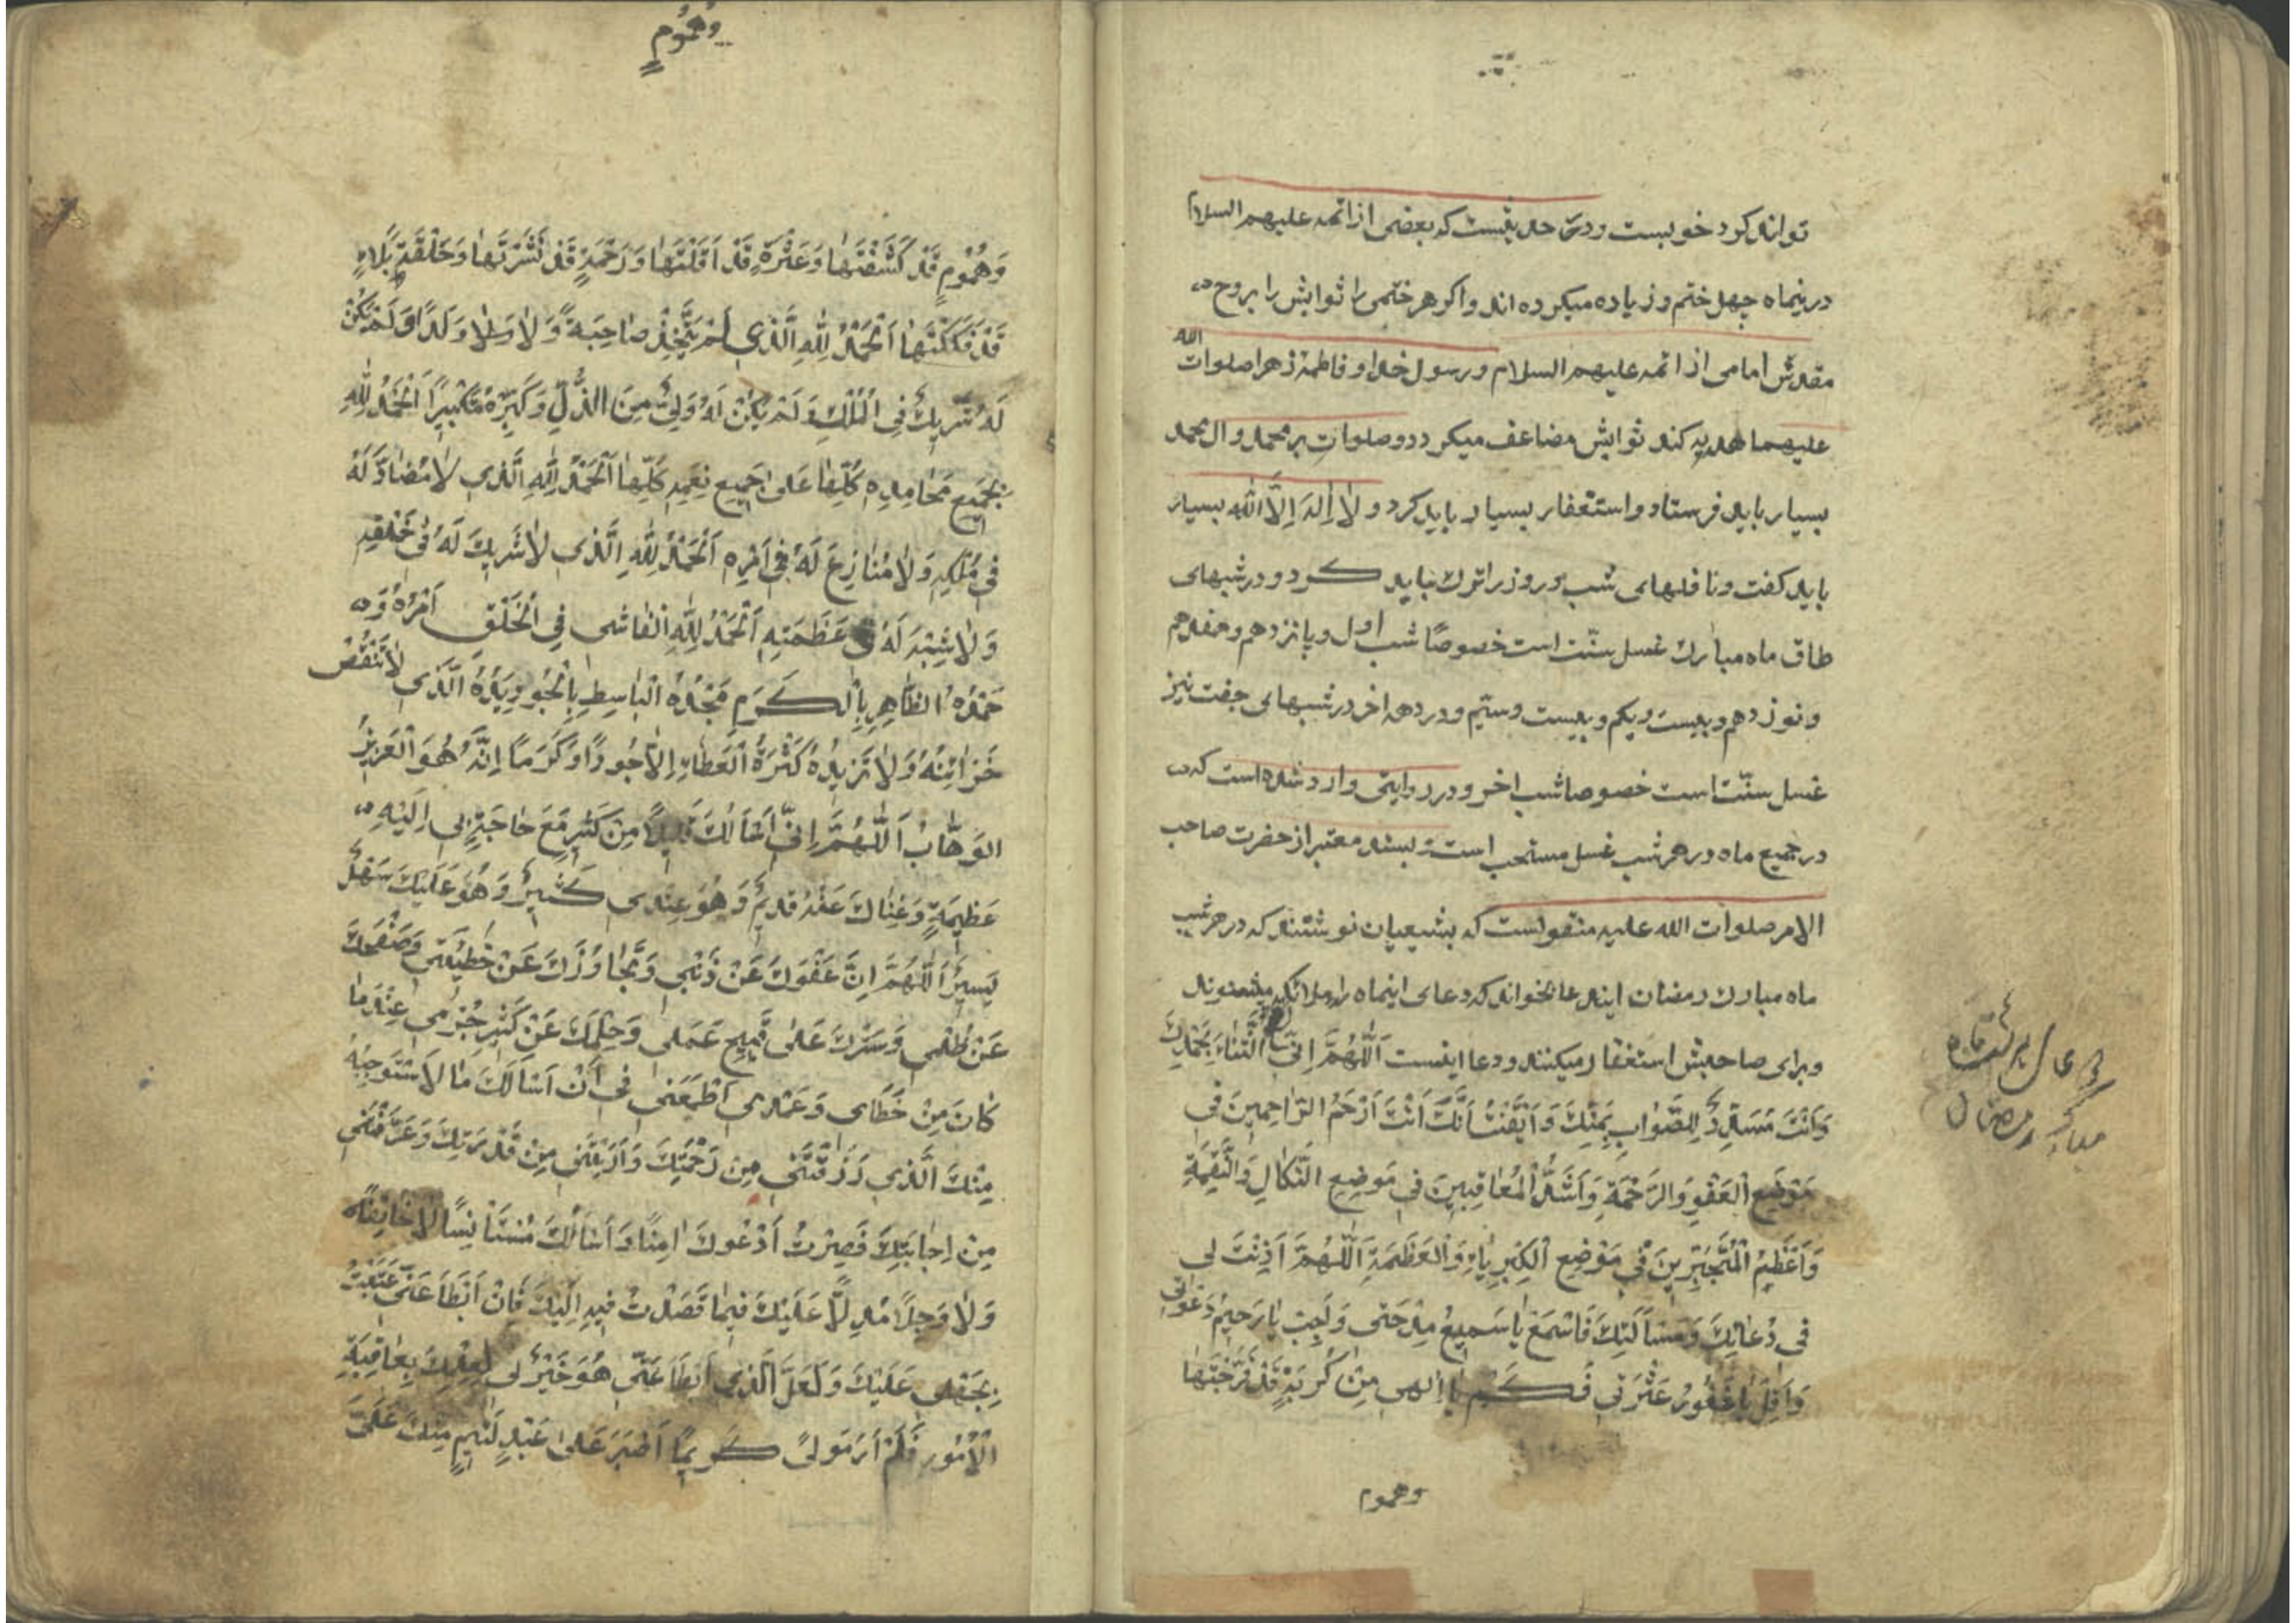 تواند کرد خوبست و در حدیثست که بعضی از ائمه علیهم السلام
درینماه چهل ختم و زیاده میکرده اند و اگر هر ختمی را ثوابش را بروح
مقدس امامی از ائمه علیهم السلام و رسول خدا و فاطمهٔ زهرا صلوات الله
علیهما هدیه کند ثوابش مضاعف میکردد و صلوات بر محمد و ال محمد
بسیار باید فرستاد و استغفار بسیار باید کرد و لا اِلهَ اِلّا الله بسیار
باید کفت و نافلهای شب و روز را ترک نباید کرد و در شبهای
طاق ماه مبارک غسل سنّت است خصوصًا شب اول و پانزدهم و هفدهم
و نوزدهم و بیست و یکم و بیست و سیّم و در دهه اخر در شبهای جفت نیز
غسل سنّت است خصوصا شب اخر و در روایتی وارد شده است که
در جمیع ماه در هر شب غسل مستحب است و بسند معتبر از حضرت صاحب
الامر صلوات الله علیه منقولست که بشیعیان نوشتند که در هر شب
ماه مبارک رمضان ایندعا بخوانند که دعای اینماه را ملائکه میشنوند
و برای صاحبش استغفار میکنند و دعا اینست اَللّهُمَّ اِنّی اَفْتَتِحُ الثَّناءَ بِحَمْدِكَ
وَاَنْتَ مُسَدِّدٌ لِلصَّوابِ بِمَنِّكَ وَاَیْقَنْتُ اَنَّكَ اَنْتَ اَرْحَمُ الرّاحِمینَ فی
مَوْضِعِ الْعَفْوِ وَالرَّحْمَةِ وَاَشَدُّ الْمُعاقِبینَ فی مَوْضِعِ النَّكالِ وَالنَّقِمَةِ
وَاَعْظَمُ الْمُتَجَبِّرینَ فی مَوْضِعِ الْكِبْرِیاءِ وَالْعَظَمَةِ اَللّهُمَّ اَذِنْتَ لی
فی دُعائِكَ وَمَسْاَلَتِكَ فَاسْمَعْ یا سَمیعُ مِدْحَتی وَاَجِبْ یا رَحیمُ دَعْوَتی
وَاَقِلْ یا غَفُورُ عَثْرَتی فَكَمْ یا اِلهی مِنْ كُرْبَةٍ قَدْ فَرَّجْتَها
وهموم
مبارک رمضان
وَهُمُومٍ
وَهُمُومٍ قَدْ كَشَفْتَها وَعَثْرَةٍ قَدْ اَقَلْتَها وَرَحْمَةٍ قَدْ نَشَرْتَها وَحَلْقَةِ بَلاءٍ
قَدْ فَكَكْتَها اَلْحَمْدُ لِلّهِ الَّذی لَمْ یَتَّخِذْ صاحِبَةً وَلا وَلَدًا وَلَمْ یَكُنْ
لَهُ شَریكٌ فِی الْمُلْكِ وَلَمْ یَكُنْ لَهُ وَلِیٌّ مِنَ الذُّلِّ وَكَبِّرْهُ تَكْبیرًا اَلْحَمْدُ لِلّهِ
بِجَمیعِ مَحامِدِهِ كُلِّها عَلی جَمیعِ نِعَمِهِ كُلِّها اَلْحَمْدُ لِلّهِ الَّذی لا مُضادَّ لَهُ
فی مُلْكِهِ وَلا مُنازِعَ لَهُ فی اَمْرِهِ اَلْحَمْدُ لِلّهِ الَّذی لا شَریكَ لَهُ فی خَلْقِهِ
وَلا شِبْهَ لَهُ فی عَظَمَتِهِ اَلْحَمْدُ لِلّهِ الْفاشی فِی الْخَلْقِ اَمْرُهُ وَ
حَمْدُهُ الظّاهِرِ بِالْكَرَمِ مَجْدُهُ الْباسِطِ بِالْجُودِ یَدَهُ الَّذی لا تَنْقُصُ
خَزائِنُهُ وَلا تَزیدُهُ كَثْرَةُ الْعَطاءِ اِلّا جُودًا وَكَرَمًا اِنَّهُ هُوَ الْعَزیزُ
الوَهّابُ اَللّهُمَّ اِنّی اَسْاَلُكَ قَلیلًا مِنْ كَثیرٍ مَعَ حاجَةٍ بی اِلَیْهِ
عَظیمَةٍ وَغِناكَ عَنْهُ قَدیمٌ وَهُوَ عِنْدی كَثیرٌ وَهُوَ عَلَیْكَ سَهْلٌ
یَسیرٌ اَللّهُمَّ اِنَّ عَفْوَكَ عَنْ ذَنْبی وَتَجاوُزَكَ عَنْ خَطیئَتی وَصَفْحَكَ
عَنْ ظُلْمی وَسَتْرَكَ عَلی قَبیحِ عَمَلی وَحِلْمَكَ عَنْ كَثیرِ جُرْمی عِنْدَ ما
كانَ مِنْ خَطَای وَعَمْدی اَطْمَعَنی فی اَنْ اَسْاَلَكَ ما لا اَسْتَوْجِبُهُ
مِنْكَ الَّذی رَزَقْتَنی مِنْ رَحْمَتِكَ وَاَرَیْتَنی مِنْ قُدْرَتِكَ وَعَرَّفْتَنی
مِنْ اِجابَتِكَ فَصِرْتُ اَدْعُوكَ امِنًا وَاَسْاَلُكَ مُسْتَأْنِسًا لا خائِفًا
وَلا وَجِلًا مُدِلًّا عَلَیْكَ فیما قَصَدْتُ فیهِ اِلَیْكَ فَاِنْ اَبْطَاَ عَنّی عَتَبْتُ
بِجَهْلی عَلَیْكَ وَلَعَلَّ الَّذی اَبْطَاَ عَنّی هُوَ خَیْرٌ لی لِعِلْمِكَ بِعاقِبَةِ
الْاُمُورِ فَلَمْ اَرَ مَولیً كَریمًا اَصْبَرَ عَلی عَبْدٍ لَئیمٍ مِنْكَ عَلَیَّ